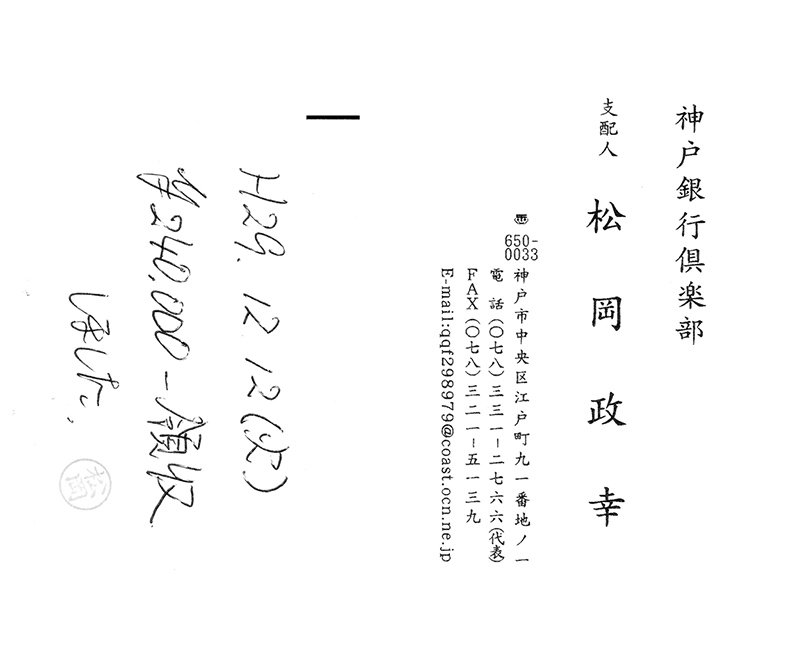 神戸銀行倶楽部
支配人 松岡政幸
〠 650-0033 神戸市中央区江戸町九一番地ノ一
電話(〇七八)三三一－二七六六(代表)
FAX(〇七八)三二一－五一三九
E-mail:qqf298979@coast.ocn.ne.jp
H29. 12. 12(火)
¥240,000－領収
しました。
松岡